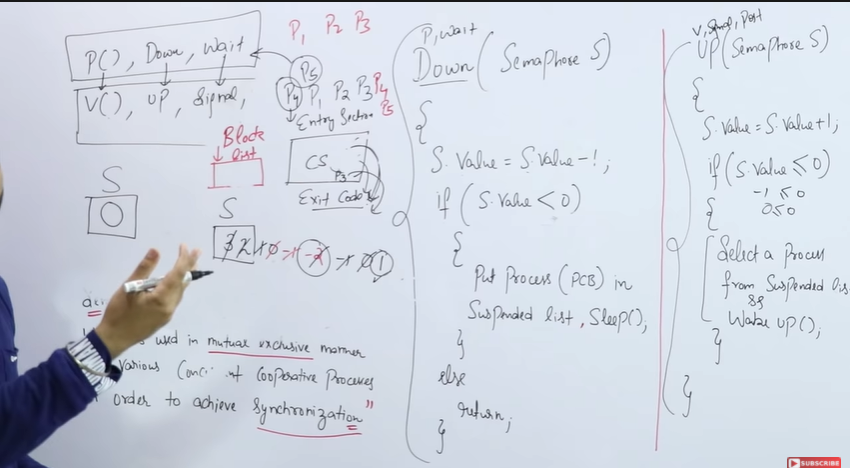 P(), Down, Wait
V(), UP, Signal,
P1 P2 P3
P5
P4 P1 P2 P3 P4
P5
Entry Section
CS
P3
Exit Code
Block
list
S
0
S
3 2 1 0 -1 -2 -1 0 1
used in mutual exclusive manner
various Cooperative Processes
order to achieve synchronization"
P, wait
Down (Semaphore S)
{
S. Value = S. Value - 1;
if (S. Value < 0)
{
Put Process (PCB) in
Suspended list, Sleep();
}
else
return;
}
V, Signal, Post
UP (Semaphore S)
{
S. Value = S. Value + 1;
if (S. Value ≤ 0)
-1 ≤ 0
0 ≤ 0
{
Select a Process
from Suspended lis
Wake UP();
}
}
SUBSCRIBE